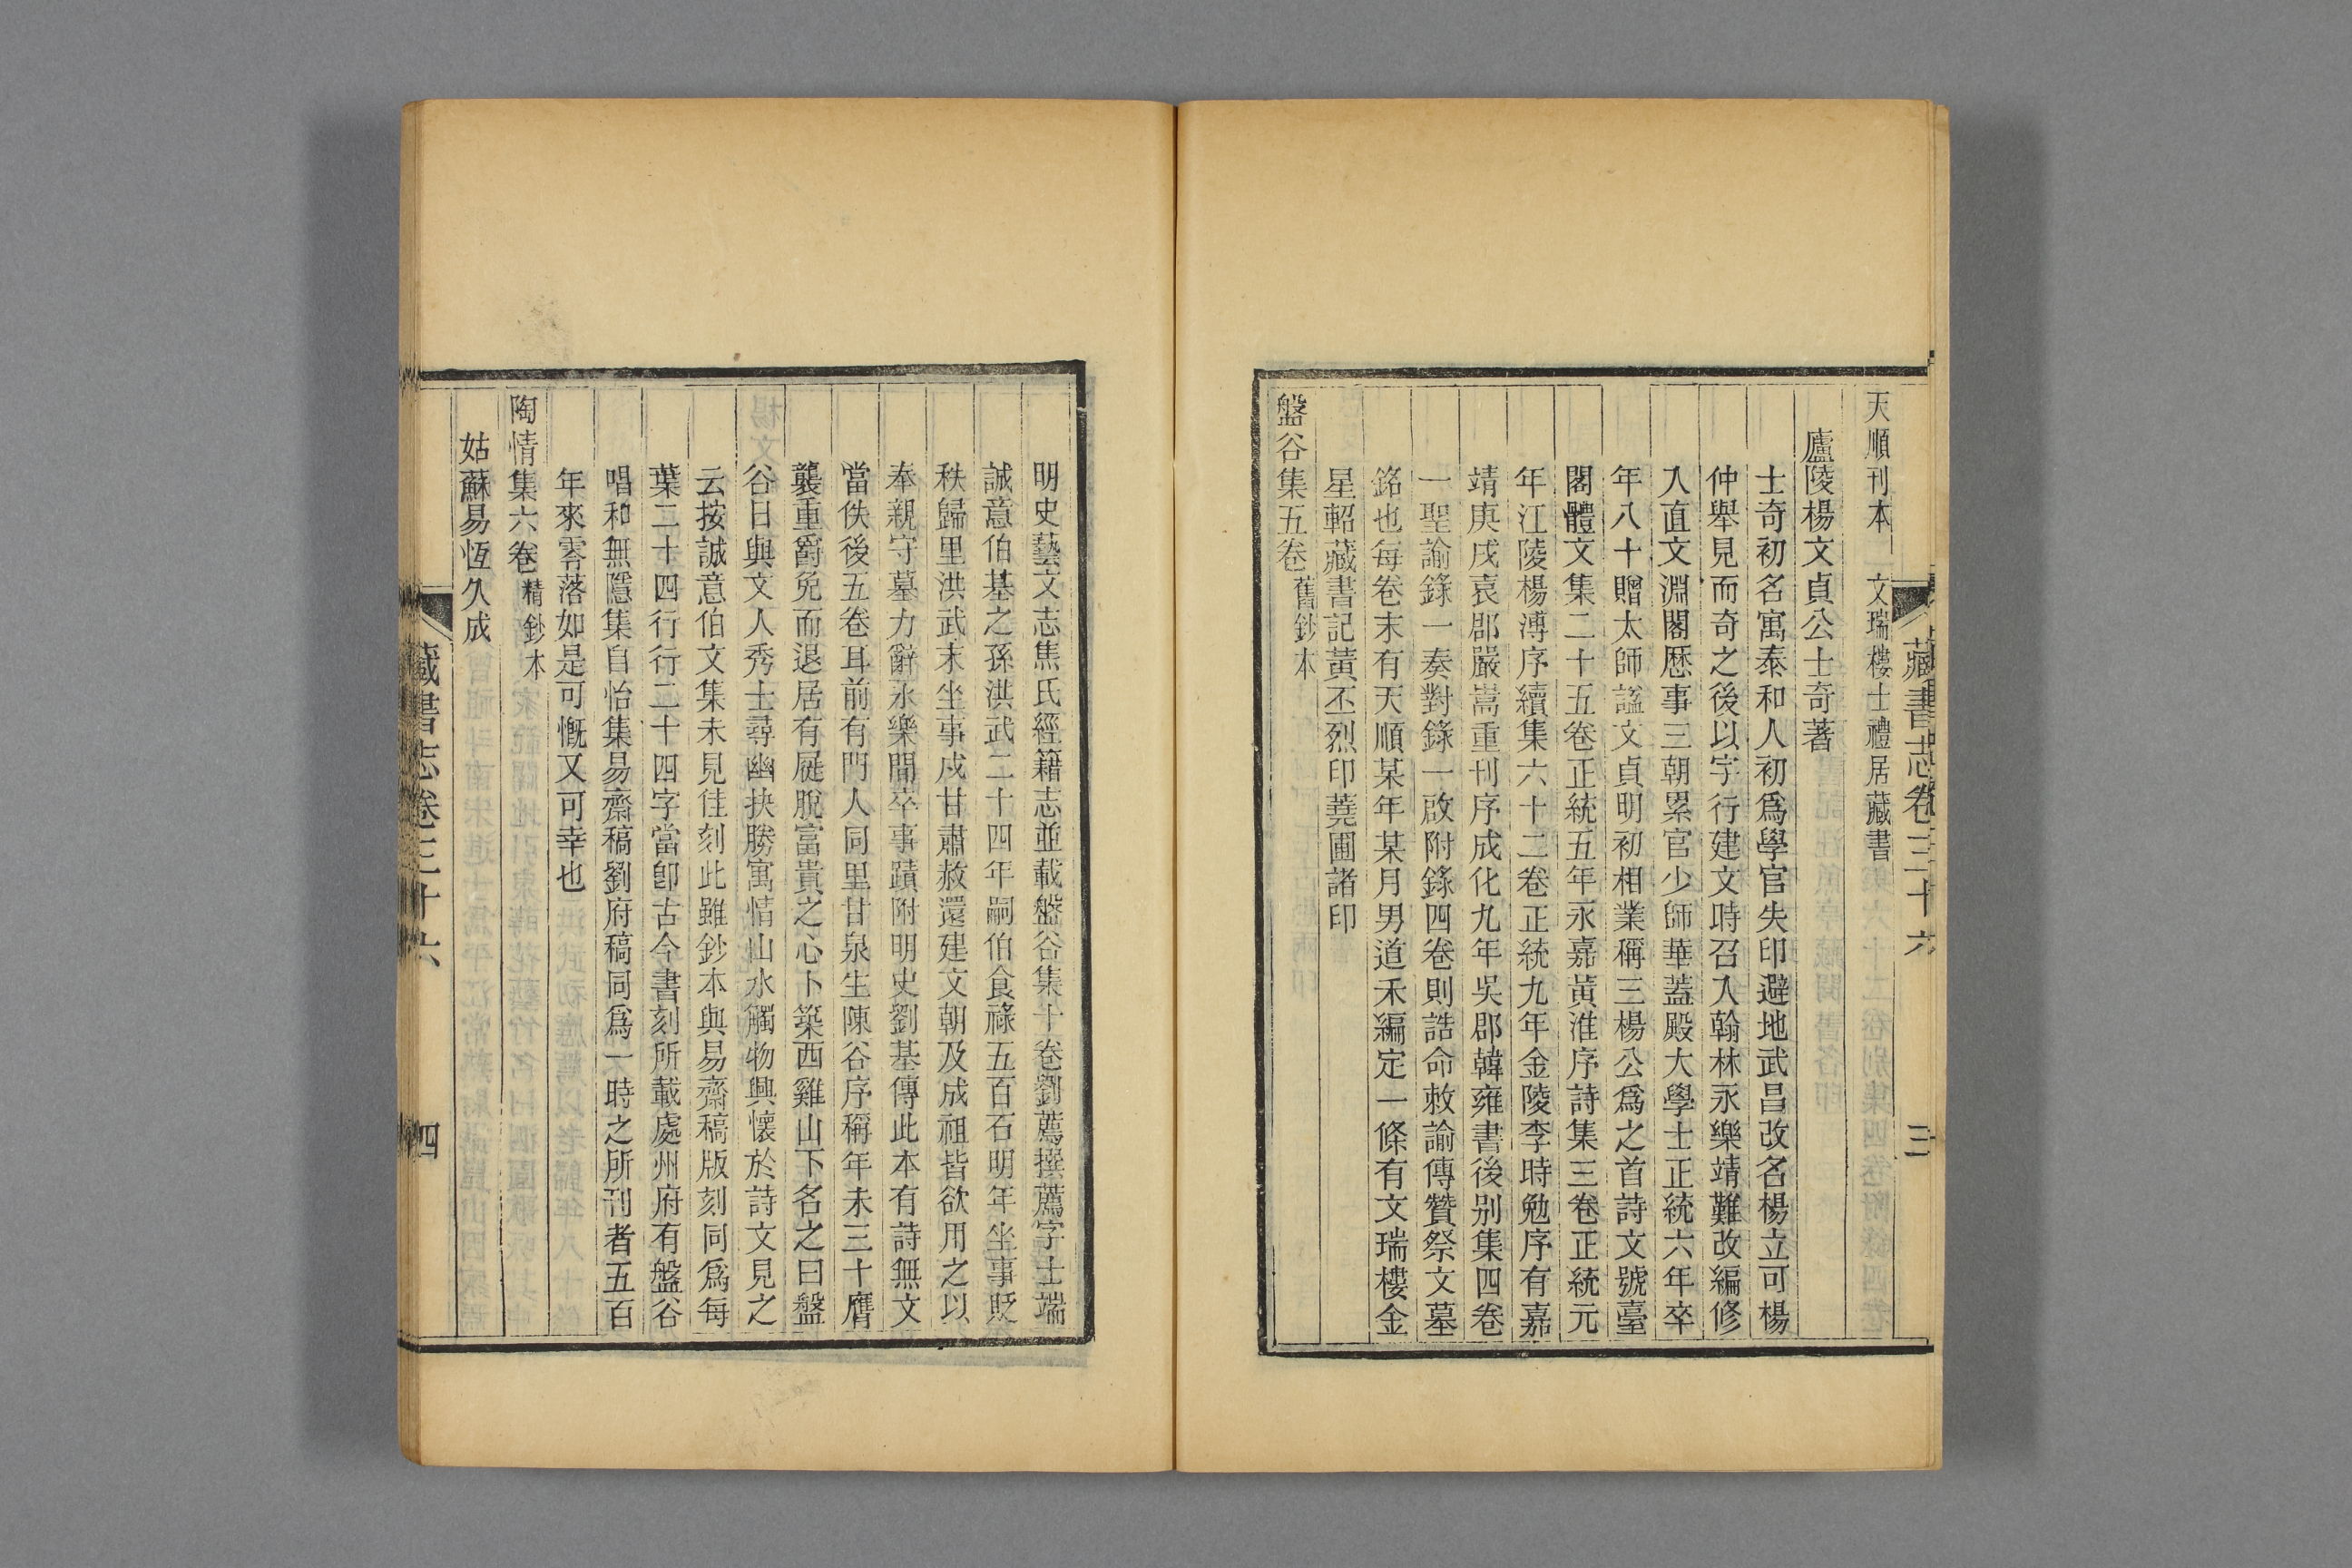 天順刊本　文瑞樓士禮居藏書
廬陵楊文貞公士奇著
士奇初名寓泰和人初爲學官失印避地武昌改名楊立可楊
仲舉見而奇之後以字行建文時召入翰林永樂靖難改編修
入直文淵閣歷事三朝累官少師華蓋殿大學士正統六年卒
年八十贈太師謚文貞明初相業稱三楊公爲之首詩文號臺
閣體文集二十五卷正統五年永嘉黃淮序詩集三卷正統元
年江陵楊溥序續集六十二卷正統九年金陵李時勉序有嘉
靖庚戌袁郡嚴嵩重刊序成化九年吳郡韓雍書後別集四卷
一聖諭錄一奏對錄一啟附錄四卷則誥命敕諭傳贊祭文墓
銘也每卷末有天順某年某月男道禾編定一條有文瑞樓金
星軺藏書記黃丕烈印蕘圃諸印
盤谷集五卷舊鈔本
藏書志卷三十六
三
明史藝文志焦氏經籍志並載盤谷集十卷劉薦撰薦字士端
誠意伯基之孫洪武二十四年嗣伯食祿五百石明年坐事貶
秩歸里洪武末坐事戍甘肅赦還建文朝及成祖皆欲用之以
奉親守墓力辭永樂間卒事蹟附明史劉基傳此本有詩無文
當佚後五卷耳前有門人同里甘泉生陳谷序稱年未三十膺
襲重爵免而退居有屣脫富貴之心卜築西雞山下名之曰盤
谷日與文人秀士尋幽抉勝寓情山水觸物興懷於詩文見之
云按誠意伯文集未見佳刻此雖鈔本與易齋稿版刻同爲每
葉二十四行行二十四字當卽古今書刻所載處州府有盤谷
唱和無隱集自怡集易齋稿劉府稿同爲一時之所刊者五百
年來零落如是可慨又可幸也
陶情集六卷精鈔本
姑蘇易恆久成
藏書志卷三十六
四